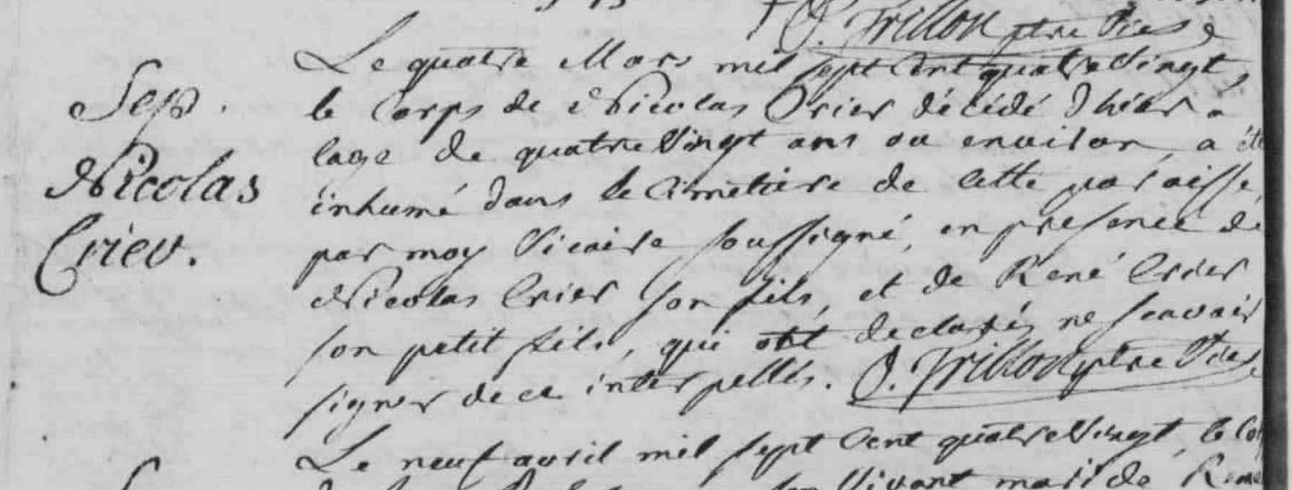 O. Trillon ptre Vic.
Le quatre Mars mil sept cent quatre Vingt
Sep.
le Corps de Nicolas Crier décédé d'hier à
lage de quatre Vingt ans ou environ, a été
Nicolas
inhumé dans le Cimetiere de cette paroisse,
par moy Vicaire soussigné, en presence de
Crier.
Nicolas Crier son fils, et de René Crier
son petit fils, qui ont declarés ne scavoir
signer de ce interpellés. O. Trillon ptre Vic.
Le neuf avril mil sept Cent quatre Vingt, le Co
Vivant mari de René